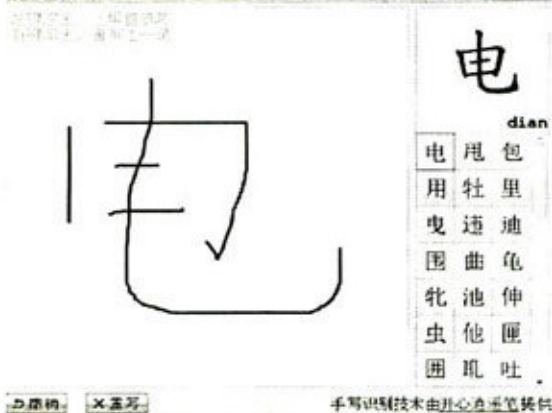 电
电
dian
电 甩 包
用 牡 里
曳 迺 迪
围 曲 龟
牝 池 伸
虫 他 匣
囲 乩 吐
重写
手写识别技术由开心逍遥笔提供